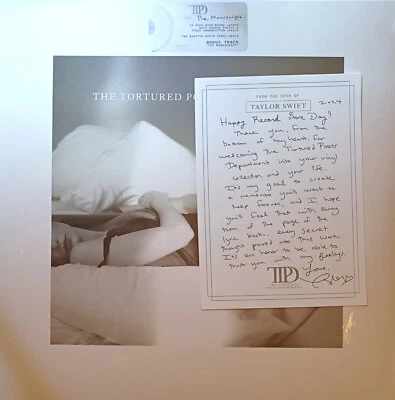 TTPD The Manuscript
BONUS TRACK
THE TORTURED PO
FROM THE DESK OF
TAYLOR SWIFT
2024
Happy Record Store Day!!
Thank you, from the
bottom of my heart, for
welcoming The Tortured Poets
Department into your vinyl
collection and your life.
It's my goal to create
a memento you'll want to
keep forever, and I hope
you'll feel that with every
turn of the page of the
lyric book, every secret
thought poured into this work.
It's an honor to be able to
trust you with my feelings.
Love,
TTPD